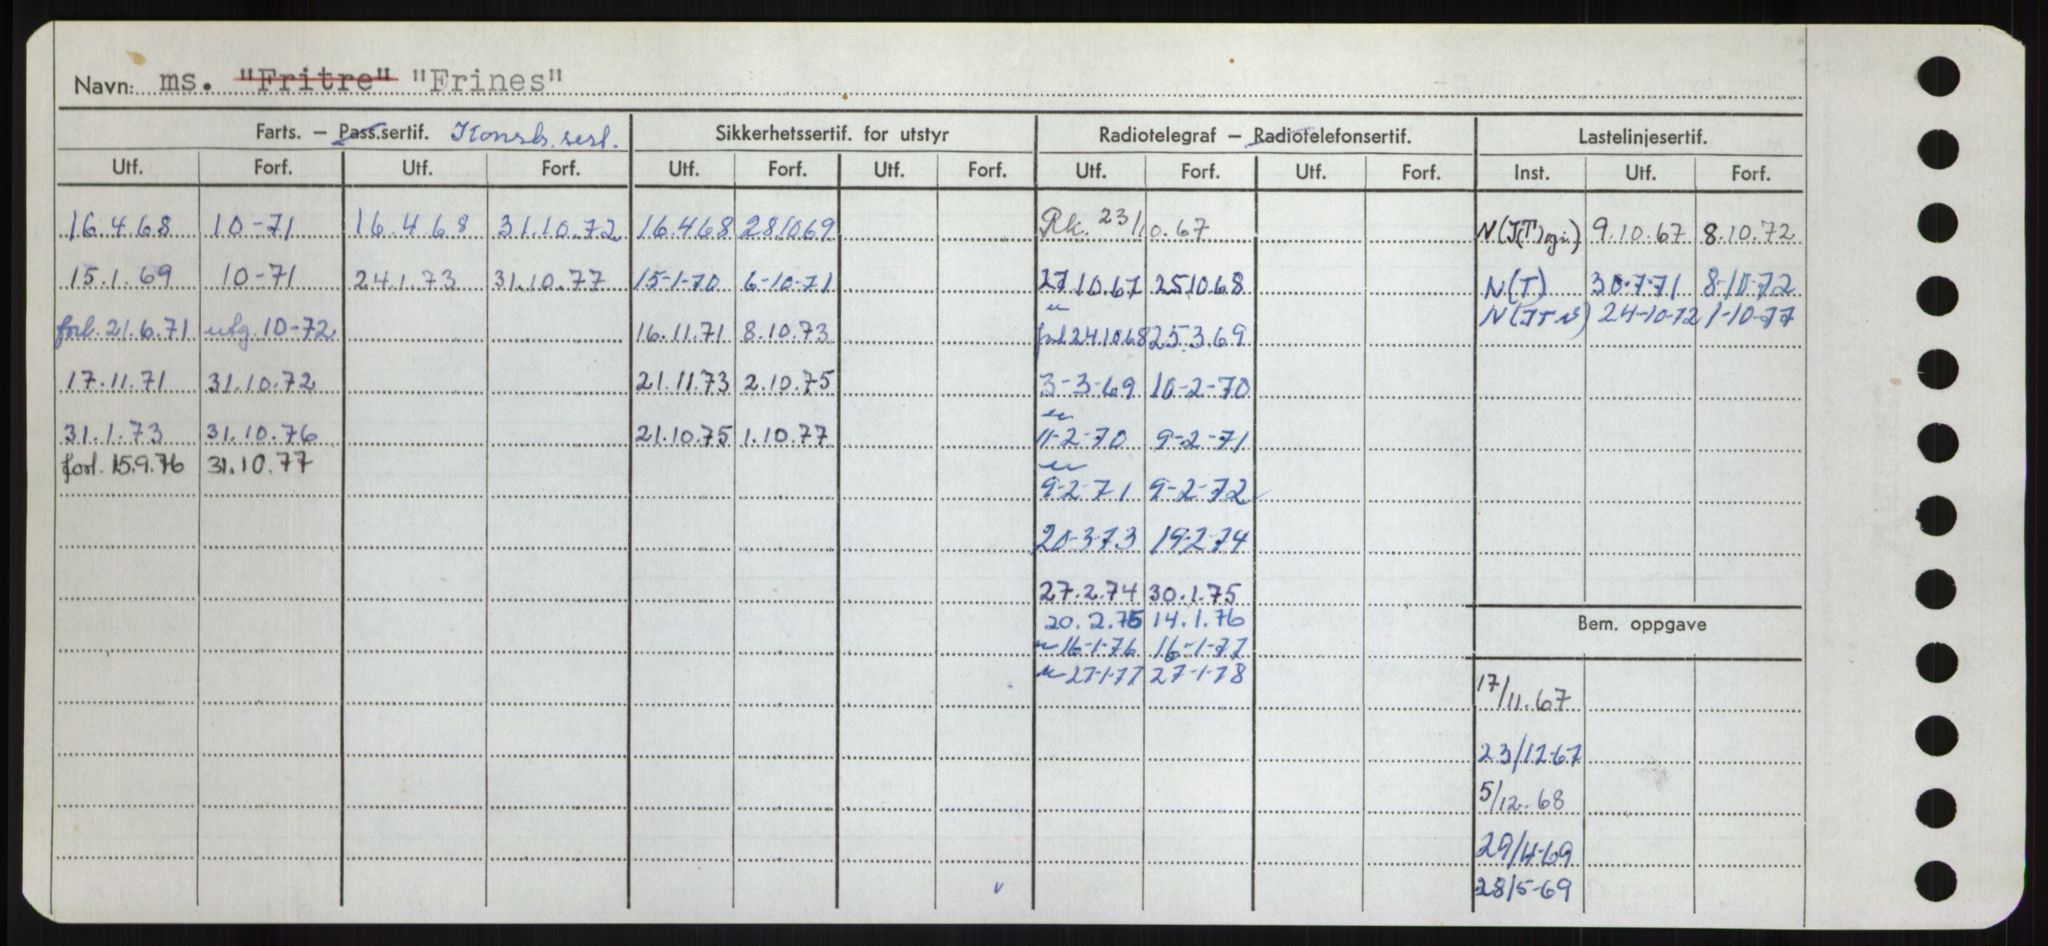 Navn: ms. "Fritre" "Frines"
Farts. — Pass.sertif. Konstr. sert. Sikkerhetssertif. for utstyr Radiotelegraf — Radiotelefonsertif. Lastelinjesertif.
Utf. Forf. Utf. Forf. Utf. Forf. Utf. Forf. Utf. Forf. Utf. Forf. Inst. Utf. Forf.
16.4.68 10-71 16.4.68 31.10.72 16.4.68 28.10.69 Rk. 23/10.67 9.10.67 8.10.72
15.1.69 10-71 24.1.73 31.10.77 15-1-70 6-10-71 27.10.67 25.10.68 N(T) 30.7.71 8-10-72
forl. 21.6.71 utg. 10-72 16.11.71 8.10.73 forl 24.10.68 25.3.69 24-10-72 1-10-77
17.11.71 31.10.72 21.11.73 2.10.75 3-3-69 10-2-70
31.1.73 31.10.76 21.10.75 1.10.77 11-2-70 9-2-71
forl. 15.9.76 31.10.77
9-2-71 9-2-72
20-3-73 19-2-74
27.2.74 30.1.75
20.2.75 14.1.76
16-1-76 16-1-77
27-1-77 27-1-78
Bem. oppgave
17/11.67
23/12-67
5/12.68
29/4-69
28/5-69